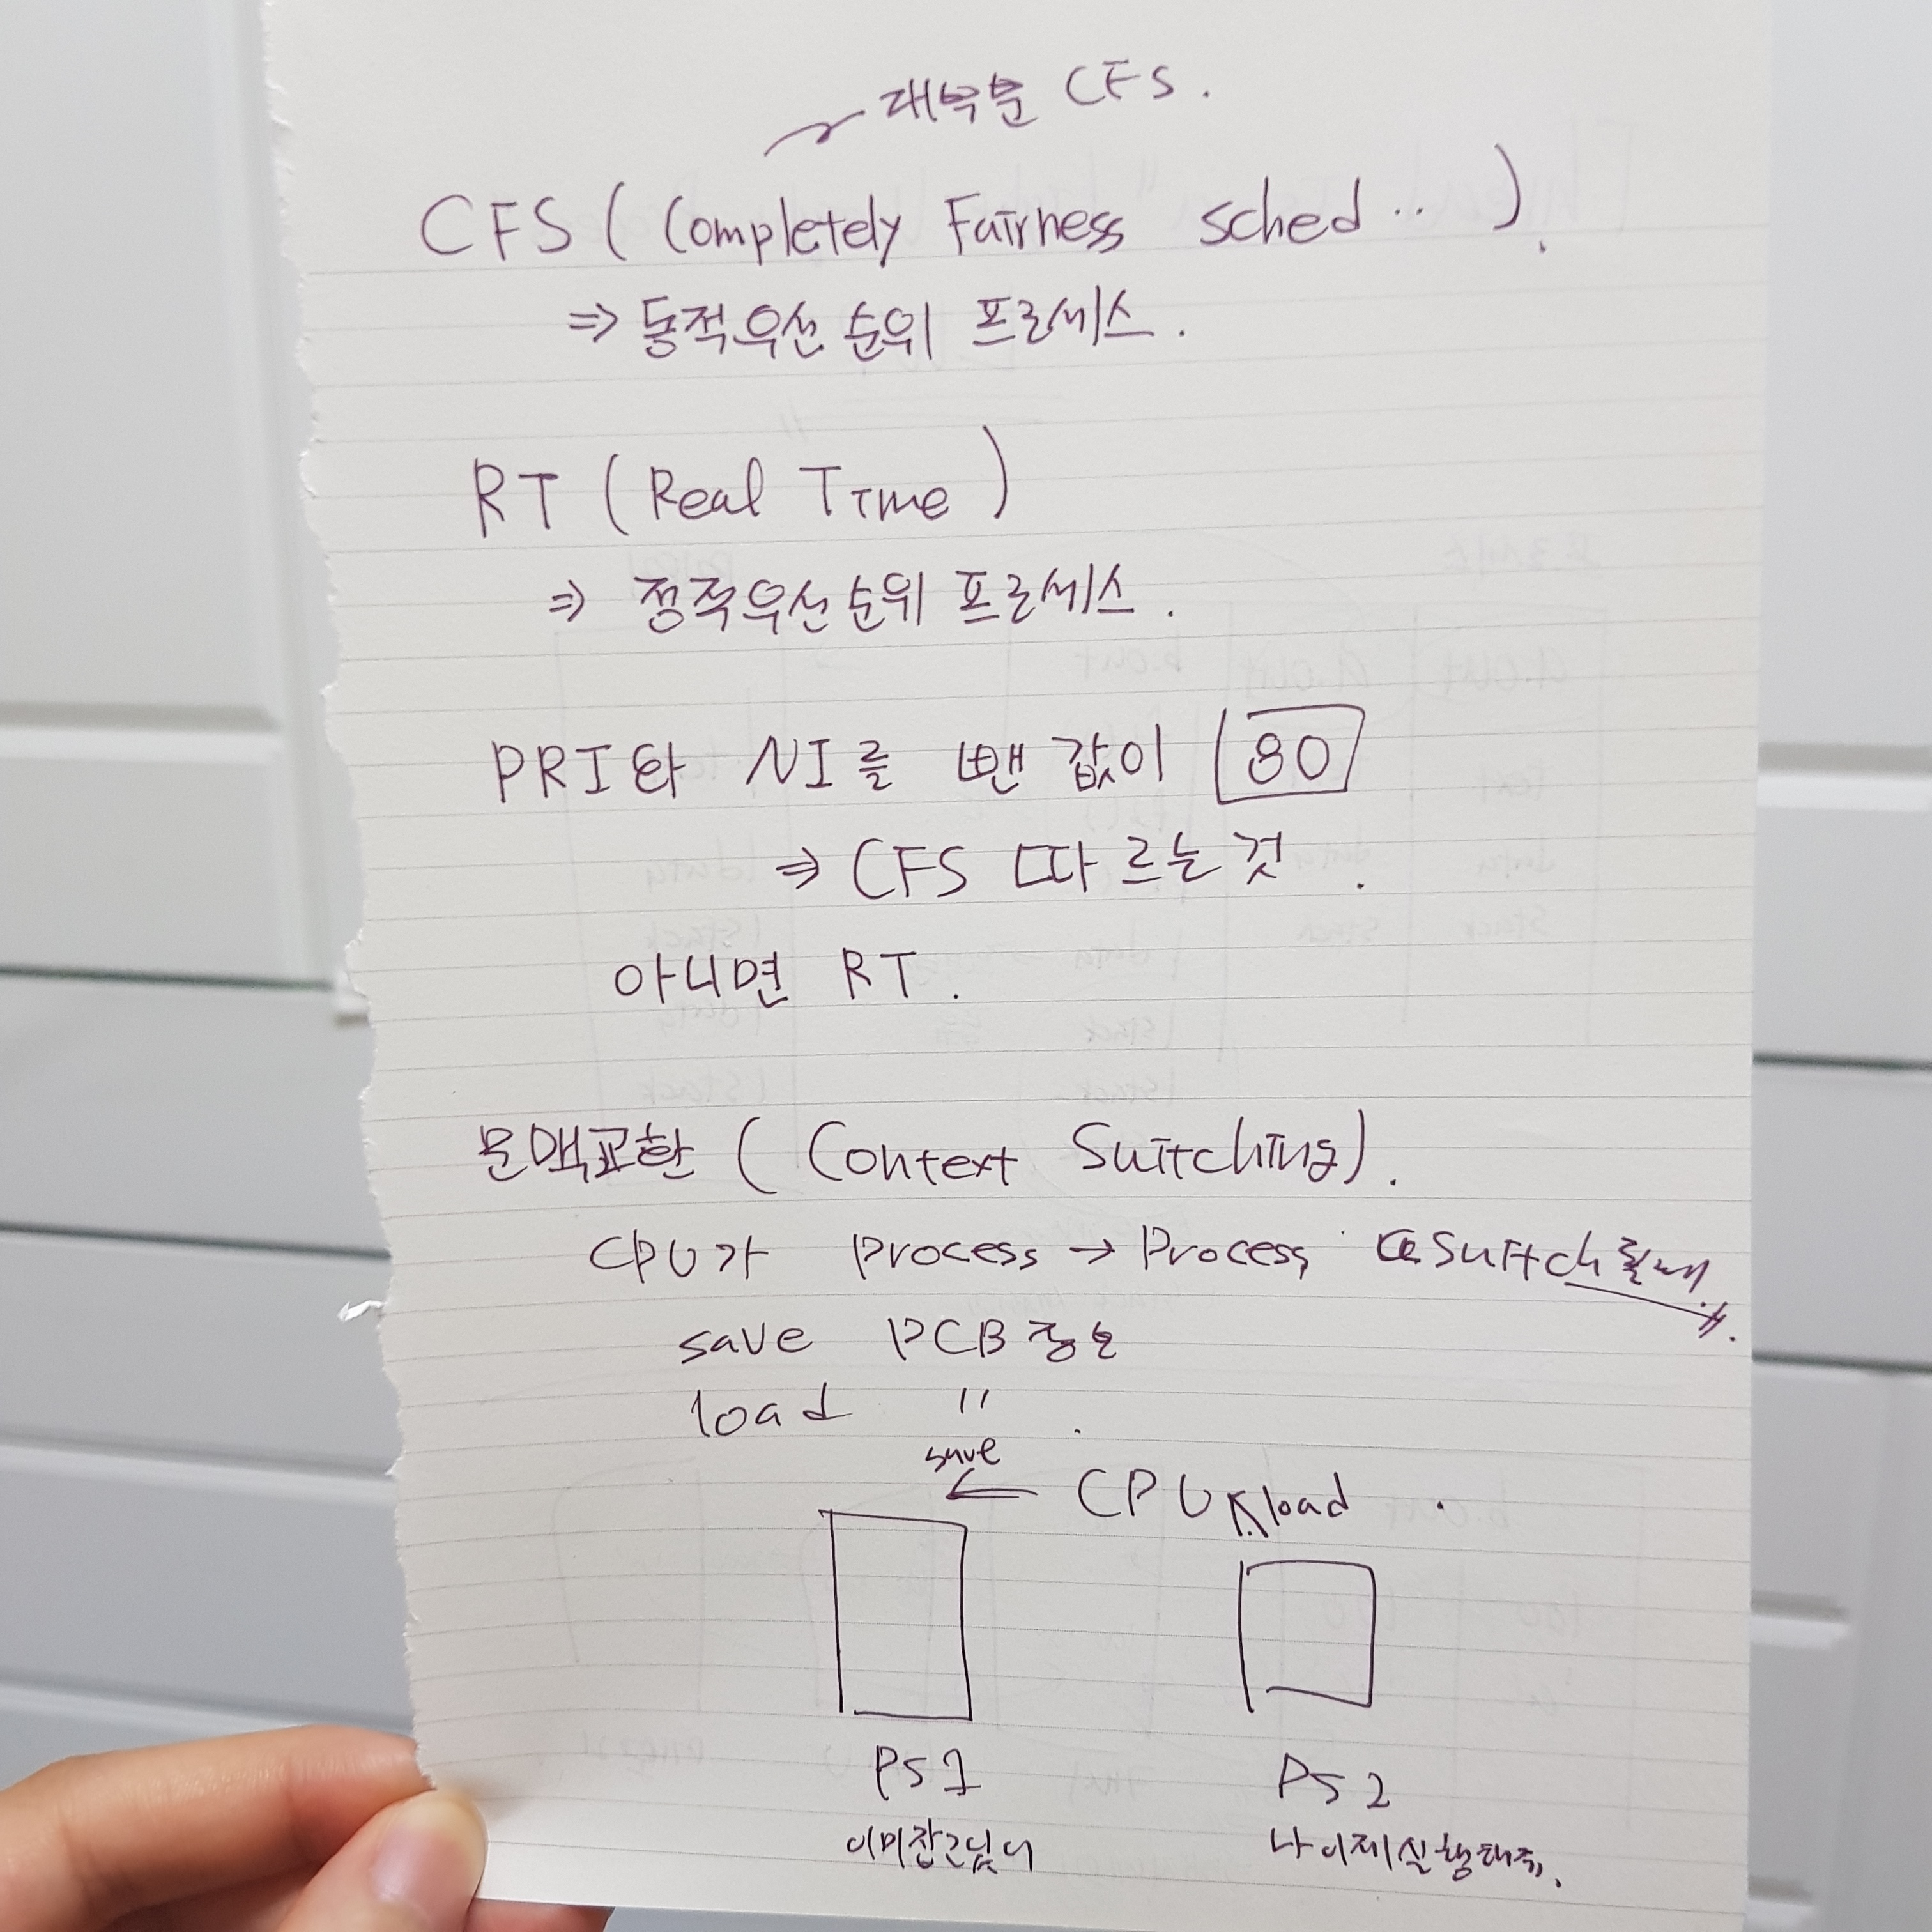 대부분 CFS.
CFS (Completely Fairness sched ..).
⇒ 동적우선순위 프로세스.
RT (Real Time)
⇒ 정적우선순위 프로세스.
PRI와 NI를 뺀 값이 80
⇒ CFS 따르는것.
아니면 RT.
문맥교환 (Context Switching).
CPU가 process → Process switch 될때
save PCB 정보
load 〃.
save
← CPU load
PS1 PS2
이미 나 이제 실행해줘.